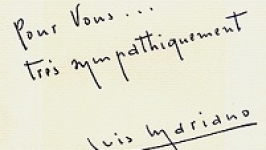 Pour Vous...
très sympathiquement
Luis Mariano